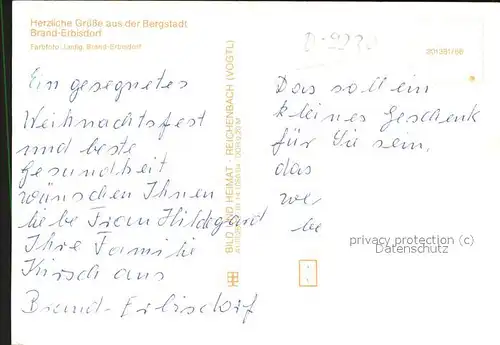 Herzliche Grüße aus der Bergstadt
Brand-Erbisdorf
Farbfoto: Ledig, Brand-Erbisdorf
Ein gesegnetes
Weihnachtsfest
und beste
Gesundheit
wünschen Ihnen
liebe Frau Hildegard
Ihre Familie
Kirsch aus
Brand-Erbisdorf
BILD UND HEIMAT · REICHENBACH (VOGTL)
Das soll ein
kleines Geschenk
für Sie sein,
das
we
be
privacy protection (c)
Datenschutz